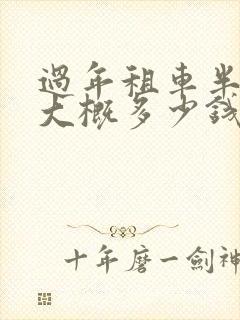 過年租車半
大概多少錢
十年磨一劍神